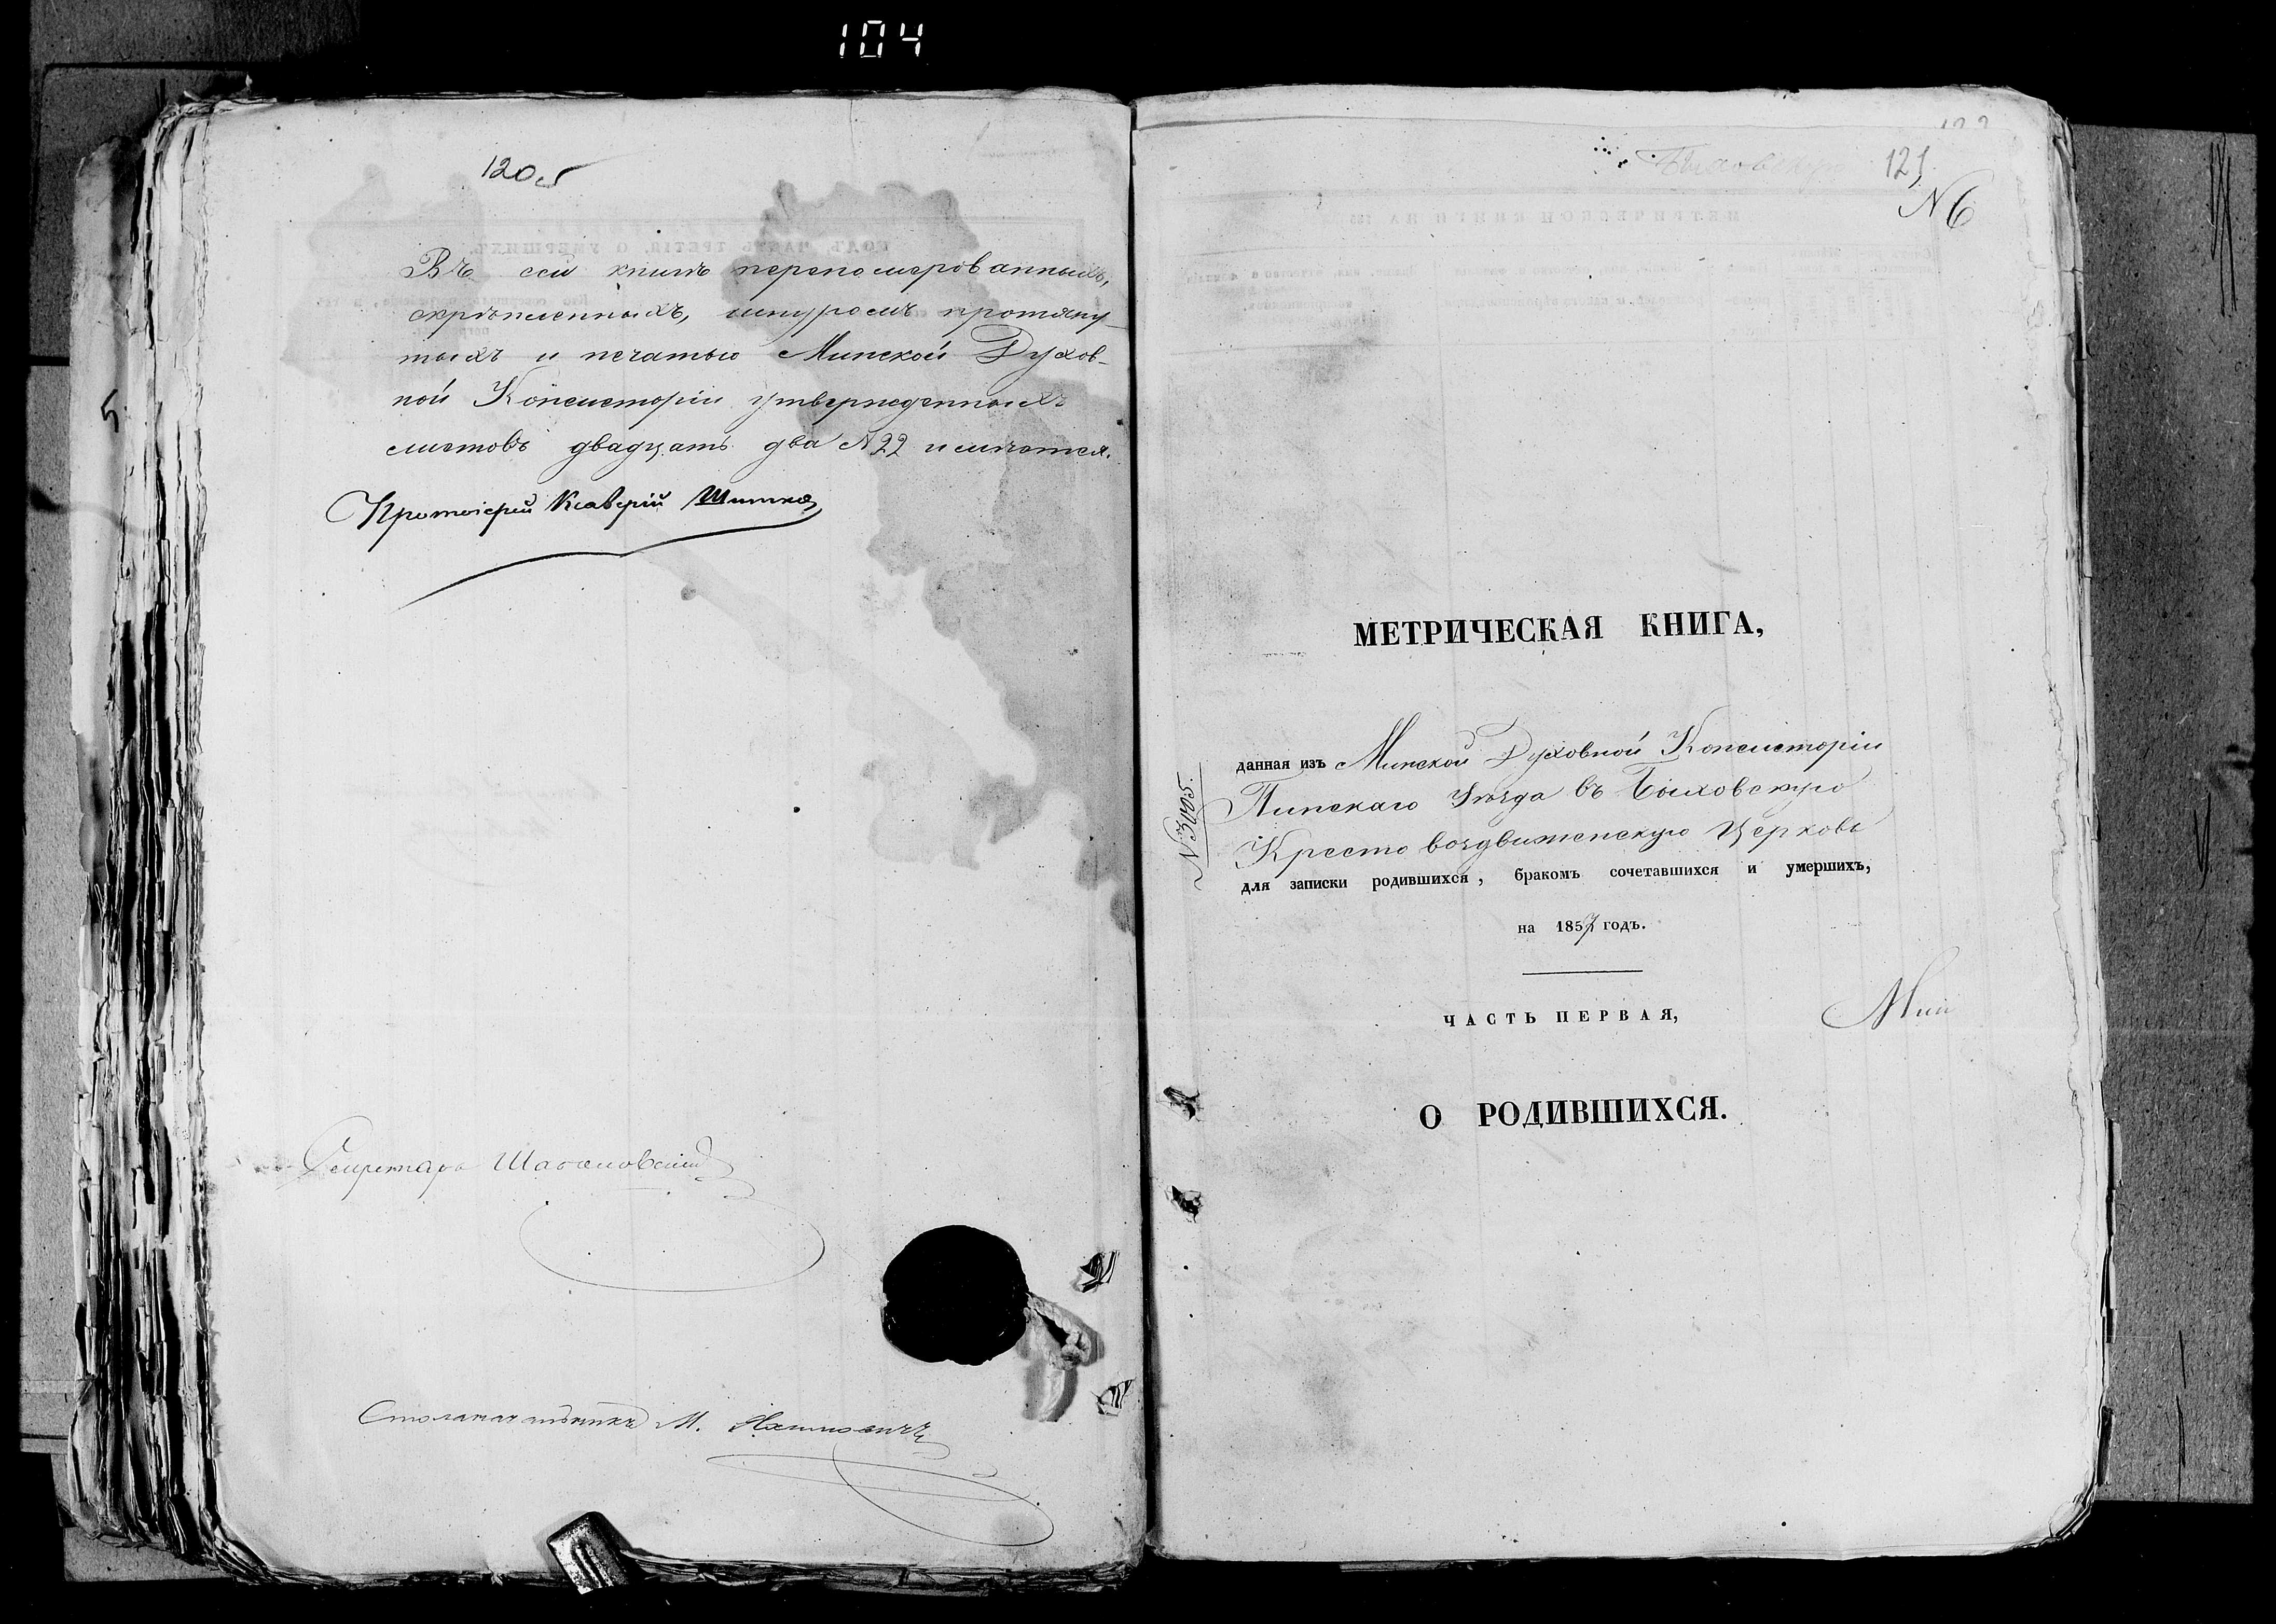 104
120об
Въ сей книгѣ переномерованныхъ,
скрѣпленныхъ, шнуромъ протяну-
тыхъ и печатью Минской Духов-
ной Консисторіи утвержденныхъ
листовъ двадцать два №22 имѣется.
Протоіерей Ксаверій
Секретарь
Столоначальникъ М.
Быховскую
121
№6
МЕТРИЧЕСКАЯ КНИГА,
данная изъ Минской Духовной Консисторіи
Пинскаго Уѣзда въ Быховскую
Кресто воздвиженскую Церковь
для записки родившихся, бракомъ сочетавшихся и умершихъ,
на 1857 годъ.
№3005.
ЧАСТЬ ПЕРВАЯ,
Мин
О РОДИВШИХСЯ.